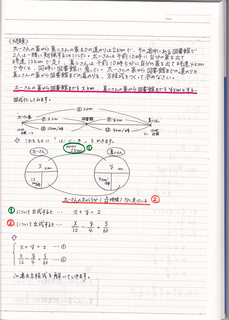 〈問題〉
太一さんの家から真二さんの家までの道のりは2kmで、その途中にある図書館で
2人は一緒に勉強することにした。太一さんは午前10時に自分の家を出て
時速12kmで走り、真二さんは午前10時5分に自分の家を出て時速4km
で歩くと、同時に図書館に着いた。太一さんの家から図書館までの道のりと
真二さんの家から図書館までの道のりを、方程式をつくって求めなさい。
太一さんの家から図書館までを x km、真二さんの家から図書館までを y km とする。
図式化してみます。
2 km
太一さん家 図書館 真二さん家
x km y km
12 km/時 4 km/時
太一さん ① 真二さん
x km y km
12 km/時 4 km/時
②
①について立式すると … x + y = 2
②について立式すると … x/12 = y/4 + 5/60
⇩
x + y = 2 … ①
x/12 = y/4 + 5/60 … ②